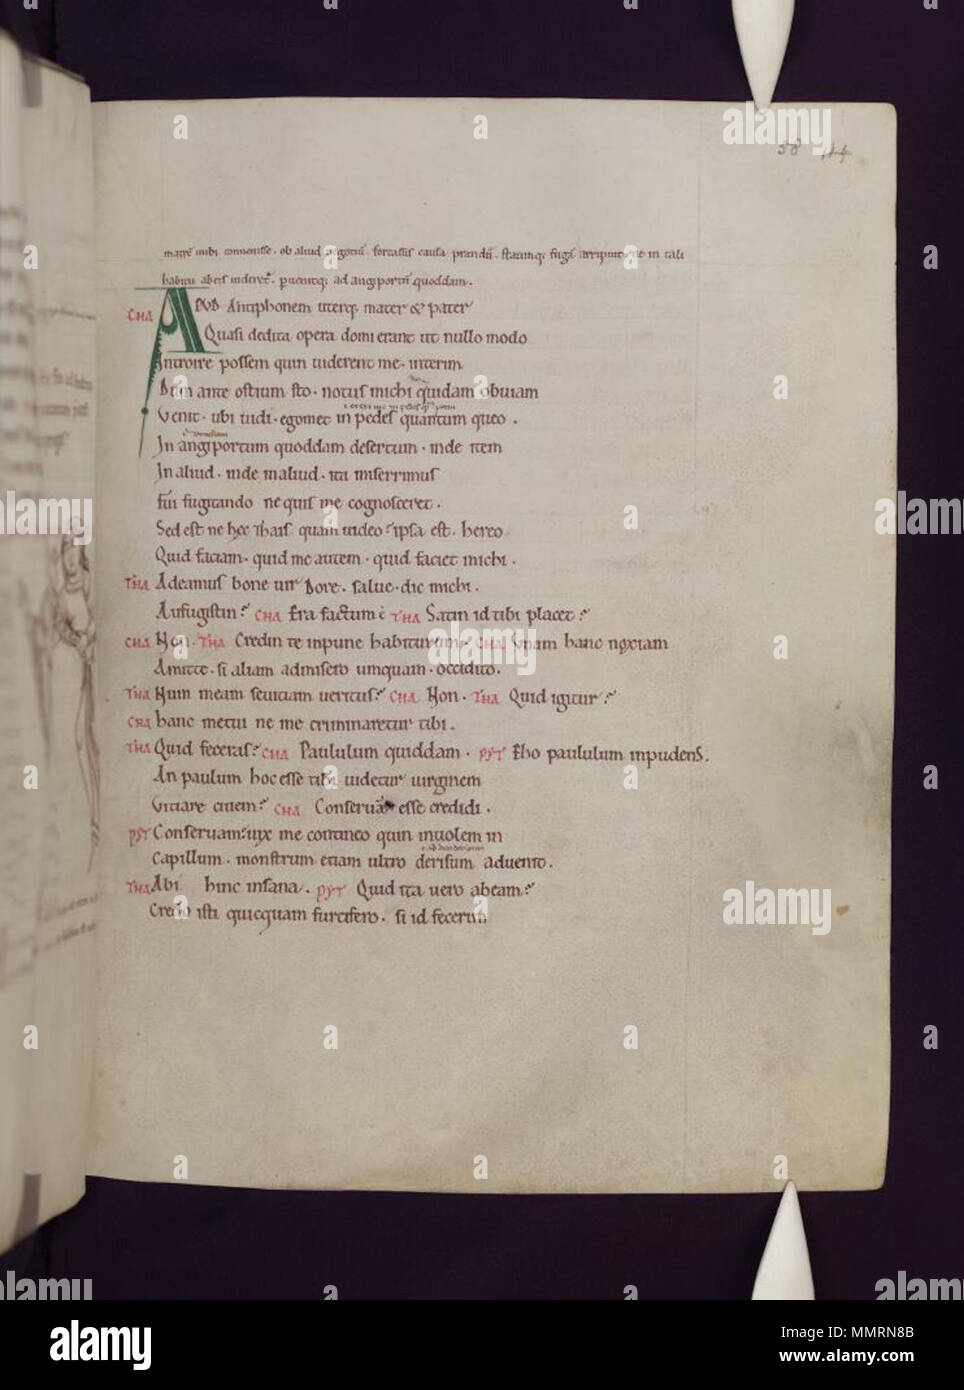 58 114
habitu abets uideret. puenitq; ad angiportū quoddam.
CHA APUD Antiphonem uterq; mater & pater
Quasi dedita opera domi erant ut nullo modo
Introire possem quin uiderent me. interim
Dum ante ostium sto. notus michi quidam obuiam
Venit. ubi uidi. egomet in pedes quantum queo.
In angiportum quoddam desertum. inde item
In aliud. inde in aliud. ita miserrimus
fui fugitando ne quis me cognosceret.
Sed est ne hęc thais quam uideo? ipsa est. hereo
Quid faciam. quid me autem. quid faciet michi.
THA Adeamus bone uir Dore. salue. dic michi.
Aufugistin? CHA Era factum ē THA Satin id tibi placet?
CHA Non. THA Credin te inpune habiturum. CHA Vnam hanc noxiam
Amitte. si aliam admisero umquam. occidito.
THA Num meam seuitiam ueritus? CHA Non. THA Quid igitur?
CHA hanc metui ne me criminaretur tibi.
THA Quid feceras? CHA Paululum quiddam. PYT Eho paululum inpudens.
An paulum hoc esse tibi uidetur uirginem
Vitiare ciuem? CHA Conseruā esse credidi.
PYT Conseruam? uix me contineo quin inuolem in
Capillum. monstrum etiam ultro derisum aduenit.
THA Abi hinc insana. PYT Quid ita uero abeam?
Credo isti quicquam furcifero. si id fecerim
alamy
Image ID: MMRN8B
www.alamy.com